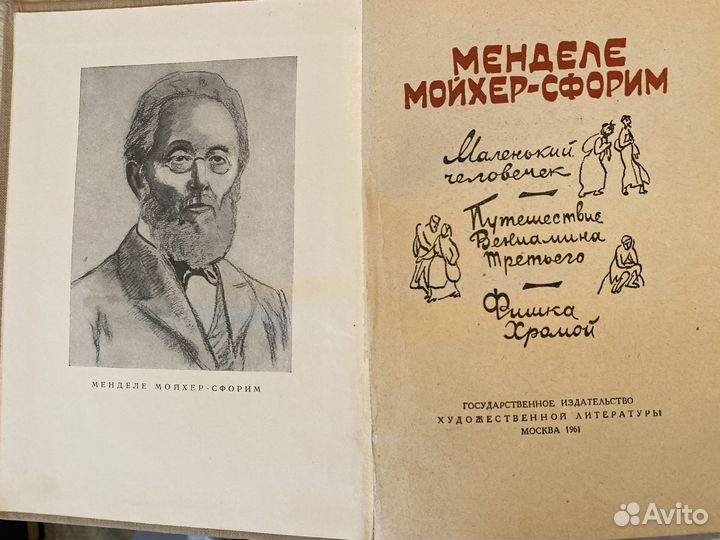 МЕНДЕЛЕ МОЙХЕР-СФОРИМ
МЕНДЕЛЕ
МОЙХЕР-СФОРИМ
Маленький
человечек
Путешествие
Вениамина
Третьего
Фишка
Хромой
ГОСУДАРСТВЕННОЕ ИЗДАТЕЛЬСТВО
ХУДОЖЕСТВЕННОЙ ЛИТЕРАТУРЫ
МОСКВА 1961
Avito